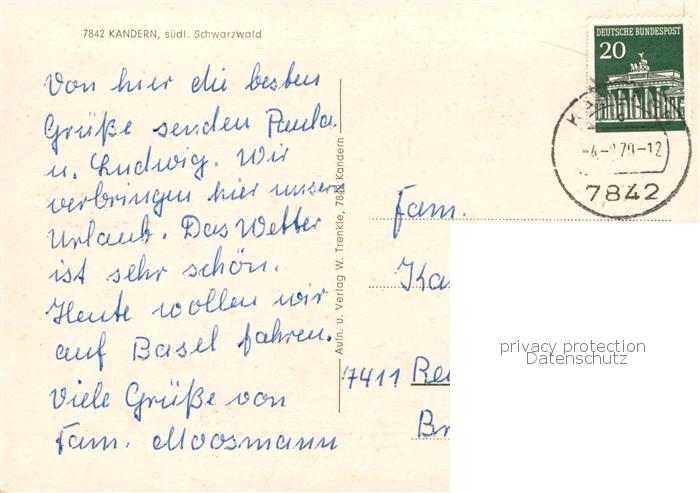 7842 KANDERN, südl. Schwarzwald
Von hier die besten
Grüße senden Paula
u. Ludwig. Wir
verbringen hier unsern
Urlaub. Das Wetter
ist sehr schön.
Heute wollen wir
auf Basel fahren.
Viele Grüße von
Fam. Moosmann
Aufn. u. Verlag W. Trenkle, 7842 Kandern
DEUTSCHE BUNDESPOST
20
70-12
7842
Fam.
Ka
7411 Re
Br
privacy protection
Datenschutz